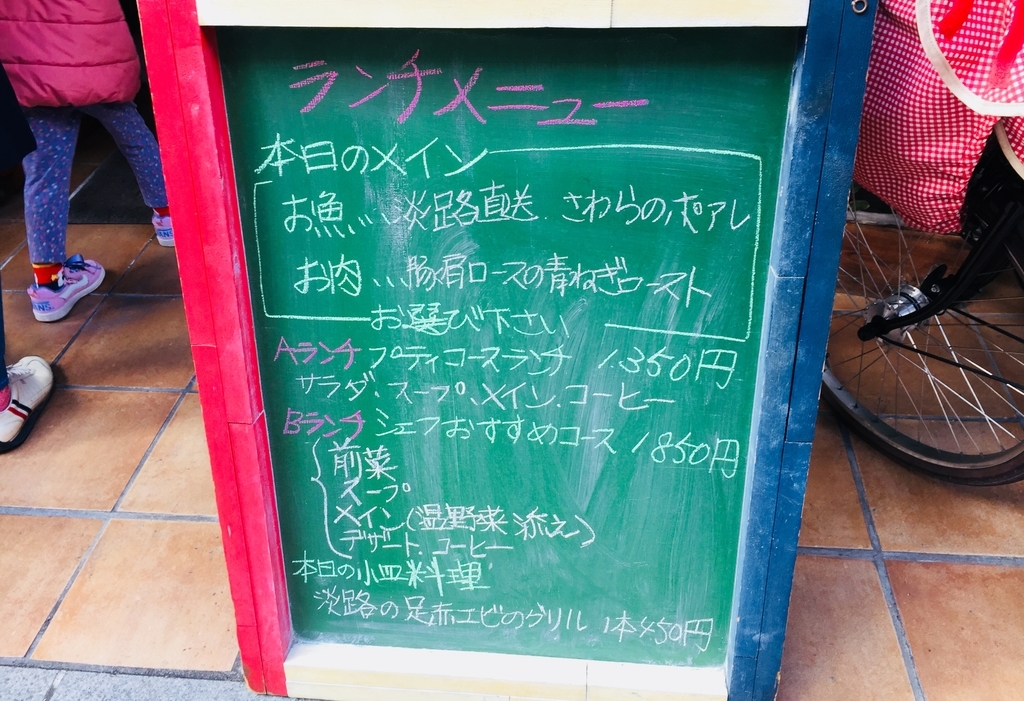 ランチメニュー
本日のメイン
お魚… 淡路直送 さわらのポアレ
お肉… 豚肩ロースの青ねぎロースト
お選び下さい
Aランチ プティコースランチ 1.350円
サラダ、スープ、メイン、コーヒー
Bランチ シェフおすすめコース 1850円
前菜
スープ
メイン(温野菜添え)
デザート、コーヒー
本日の小皿料理
淡路の足赤エビのグリル 1本450円
VANS